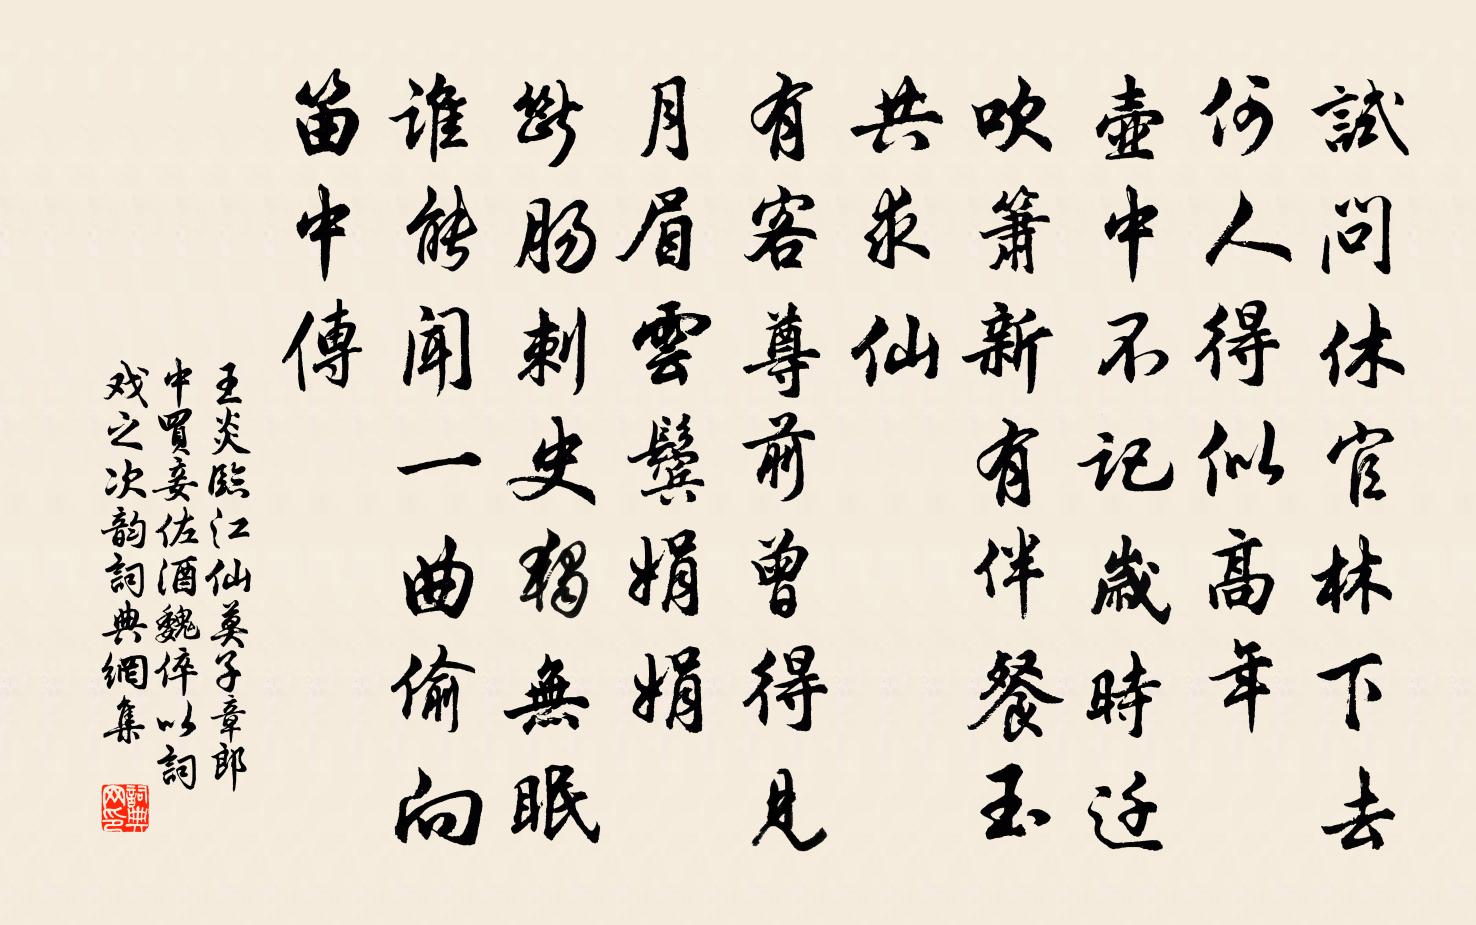 試問休官林下去
何人得似高年
壺中不記歲時迁
吹簫新有伴餐玉
共求仙
有客尊前曾得見
月眉雲鬢娟娟
斷腸刺史獨無眠
誰能聞一曲偷向
笛中傳
王炎臨江仙莫子章郎
中買妾佐酒魏倅以詞
戏之次韵詞典網集
詞典网印